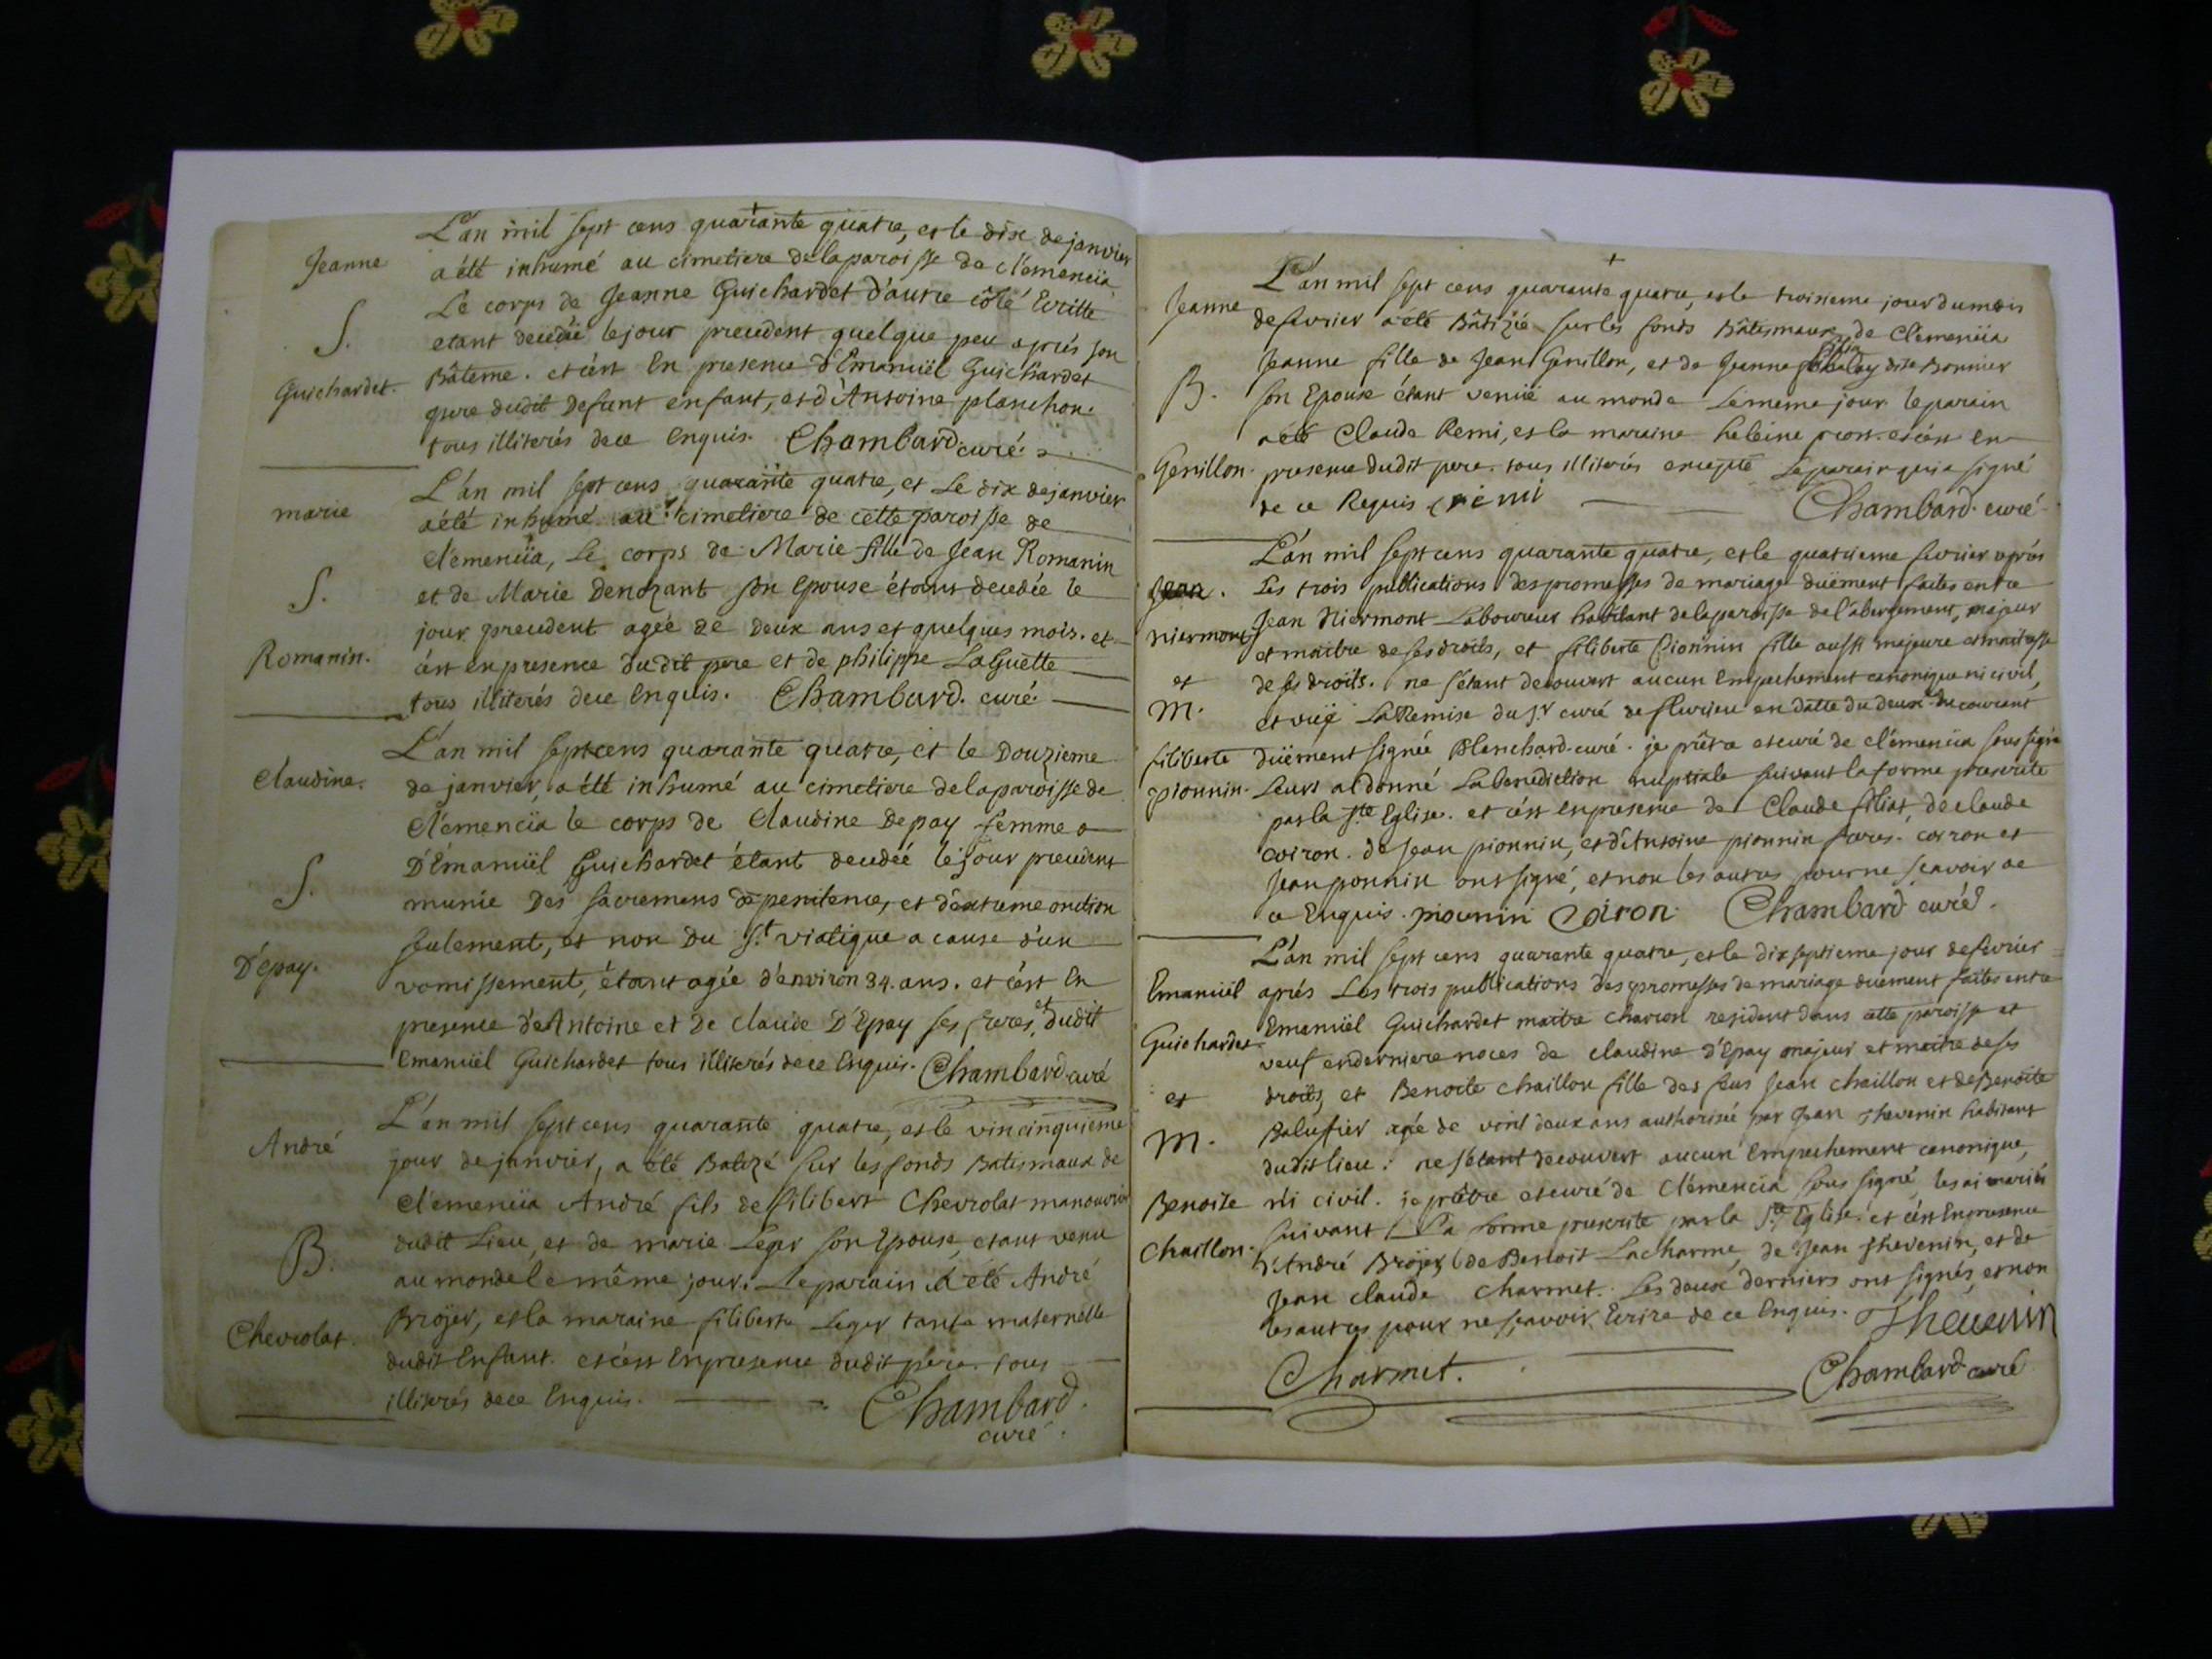 L'an mil sept cens quarante quatre, et le dix de janvier
Jeanne
a été inhumé au cimetiere de la paroisse de Clémenciia
Le corps de Jeanne Guichardet d'autre côté Ecritte
S.
etant decedée le jour precedent quelque peu aprés son
Bâteme. et c'est En presence d'Emanuël Guichardet
Guichardet.
pere dudit Defunt enfant, et d'Antoine planchon.
tous illiterés de ce Enquis. Chambard curé.
L'an mil sept cens quarante quatre, et Le dix de janvier
marie
a été inhumé au cimetiere de cette paroisse de
Clemenciia, Le corps de Marie fille de Jean Romanin
S.
et de Marie Denozant son Epouse étant decedée le
jour precedent agée de deux ans et quelques mois. et
Romanin.
c'est en presence dudit pere et de philippe La Guette
tous illiterés de ce Enquis. Chambard. curé.
L'an mil sept cens quarante quatre, et le Douzieme
Claudine.
de janvier, a été inhumé au cimetiere de la paroisse de
Clémenciia le corps de Claudine Depay femme
D'Emanuël Guichardet étant decedée le jour precedent
S.
munie Des sacremens de penitence, et d'extreme onction
seulement, et non Du St viatique a cause d'un
D'épay.
vomissement, étant agée d'environ 34. ans. et c'est En
presence de Antoine et De claude D'Epay ses freres, et dudit
Emanuël Guichardet tous illiterés de ce Enquis. Chambard curé
L'an mil sept cens quarante quatre, et le vincinquieme
André
jour de janvier, a été Batizé sur les fonds Batismaux de
Clemenciia André fils de filibert Chevrolat manouvrier
dudit Lieu, et de marie Leger son Epouse, etant venu
B.
au monde le même jour. Le parain a été André
Broÿer, et la maraine filiberte Leger tante maternelle
Chevrolat.
dudit Enfant. et c'est En presence dudit pere. tous
illiterés de ce Enquis. Chambard.
curé.
L'an mil sept cens quarante quatre, et le troisieme jour du mois
Jeanne
de fevrier a été Bâtizée sur les fonds Bâtismaux de Clemenciia
Jeanne fille de Jean Genillon, et de Jeanne dite Bonnier
B.
son Epouse étant venüe au monde Le meme jour. le parain
a été Claude Remi, et la maraine heleine pion. et c'est en
Genillon.
presence dudit pere. tous illiterés excepté Le parain qui a signé
de ce Requis remi Chambard. curé
L'an mil sept cens quarante quatre, et le quatrieme fevrier aprés
Jean.
Les trois publications des promesses de mariage düement faites entre
Jean Niermont Laboureur habitant de la paroisse de l'abergement, majeur
niermont
et maitre de ses droits, et filiberte Pionnin fille aussi majeure et maitresse
et
de ses droits. ne s'etant decouvert aucun Empechement canonique ni civil,
M.
et vüe La Remise du Sr curé de flurieu en datte du deux du courant
filiberte
düement signée Blanchard curé. je prêtre et curé de clémenciia soussigné
pionnin.
Leurs ai donné La benediction nuptiale suivant la forme prescrite
par la Ste Eglise. et c'est en presence de Claude filiat, de claude
coiron. de Jean pionnin, et d'Antoine pionnin freres. coiron et
Jean ponnin ont signé, et non les autres pour ne scavoir de
ce Enquis. pionnin Coiron Chambard curé.
L'an mil sept cens quarante quatre, et le dix septieme jour de fevrier
Emanüel
aprés Les trois publications des promesses de mariage düement faites entre
Emanüel Guichardet maitre charon resident dans cette paroisse et
Guichardet
veuf en derniere noces de claudine D'Epay majeur et maitre de ses
et
droits, et Benoite chaillon fille des feus Jean chaillon et de Benoite
Balufier agée de vint deux ans authorisée par Jean thevenin habitant
M.
dudit lieu. ne s'étant decouvert aucun Empechement canonique,
Benoite
ni civil. je prêtre et curé de Clémencia soussigné les ai mariés
suivant La forme prescrite par la Ste Eglise. et c'est En presence
Chaillon.
d'André Broÿer, de Benoit Lacharme, de Jean thevenin, et de
Jean claude Charmet. Les deux derniers ont signés, et non
les autres pour ne scavoir Ecrire de ce Enquis. Thevenin
Charmet. Chambard curé